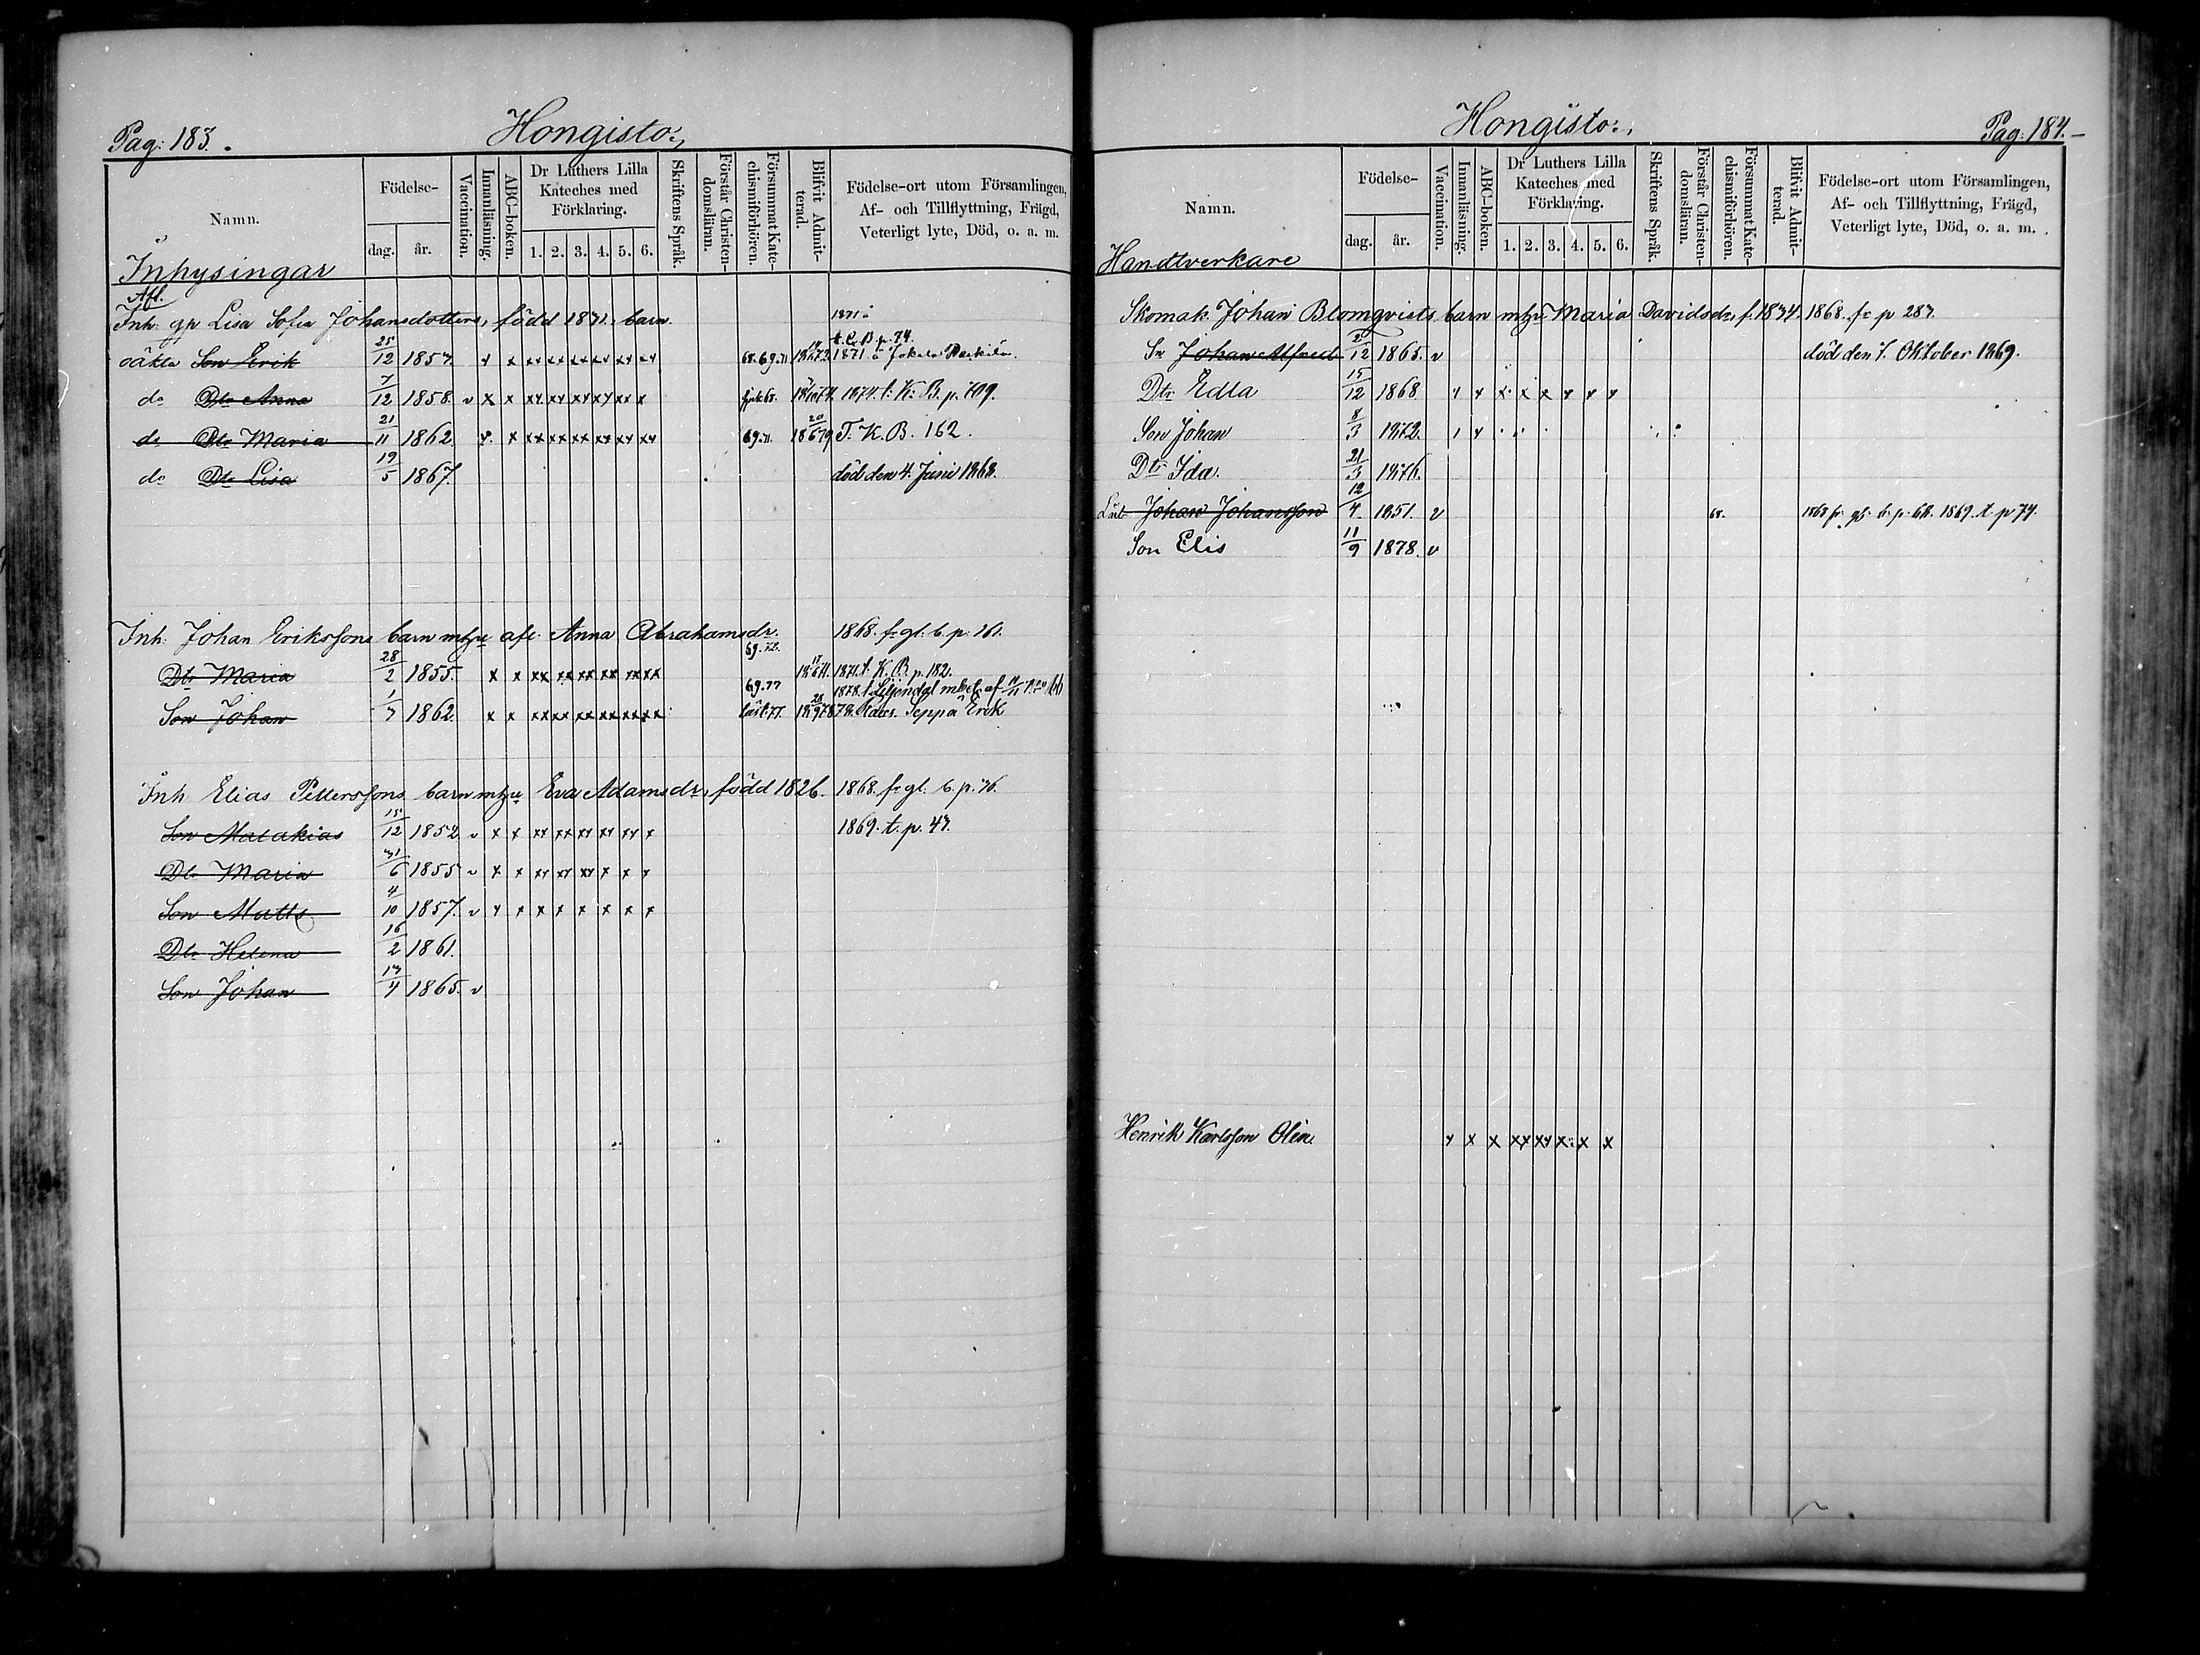 Pag: 183.
Hongisto:,
Namn.
Födelse-
dag.
år.
Vaccination.
Innanläsning.
ABC-boken.
Dr Luthers Lilla Kateches med Förklaring.
1. 2. 3. 4. 5. 6.
Skriftens Språk.
Förstår Christendomsläran.
Försummat Katechismiförhören.
Blifvit Admitterad.
Födelse-ort utom Församlingen, Af- och Tillflyttning, Frägd, Veterligt lyte, Död, o. a. m.
Inhysingar
Afl.
Inh. gp Lisa Sofia Johansdotters, född 1831. barn
oäkta Son Erik 25/12 1857. x x xx xx xx xx xx xx 68.69.71 t. C. B. p. 74.
do Dtr Anna 7/12 1858. v x x xx xx xx xx xx x 1874. t. K. B. p. 109.
do Dtr Maria 21/11 1862. x x xx xx xx xx xx xx 69.71. T. K. B. 162.
do Dtr Lisa 19/5 1867. död den 4. Juni 1868.
Inh. Johan Erikssons barn mhu afl. Anna Abrahamsdr. 1868. fr gl. b. p. 161.
Dtr Maria 28/2 1855. x x xx xx xx xx xx xx 69.72. 1871. t. K. B. p. 182.
Son Johan 1/7 1862. x x xx xx xx xx xx xx 69.77 Seppä Erik
Inh Elias Petterssons barn mhu Eva Adamsdr, född 1826. 1868. fr gl. b. p. 76.
Son Malakias 15/12 1852. v x x xx xx xx xx xx x 1869. t. p. 47.
Dtr Maria 31/6 1855 v x x xx xx xx x x x
Son Matts 4/10 1857. v x x x x x x x x
Dtr Helena 16/2 1861.
Son Johan 13/4 1865. v
Hongisto:,
Pag: 184.
Namn.
Födelse-
dag.
år.
Vaccination.
Innanläsning.
ABC-boken.
Dr Luthers Lilla Kateches med Förklaring.
1. 2. 3. 4. 5. 6.
Skriftens Språk.
Förstår Christendomsläran.
Försummat Katechismiförhören.
Blifvit Admitterad.
Födelse-ort utom Församlingen, Af- och Tillflyttning, Frägd, Veterligt lyte, Död, o. a. m.
Handtverkare
Skomak. Johan Blomqvists barn mhu Maria Davidsdr, f. 1834. 1868. fr p 287.
Sn Johan Alfred 12 1865. v död den 1. Oktober 1869.
Dtr Edla 15/12 1868. x x x x x x x x
Son Johan 8/3 1872.
Dtr Ida. 21/3 1876.
Johan Johansson 12/4 1851. v 68. 1868 fr. gl. b. p. 68. 1869. t. p 74.
Son Elis 11/9 1878. v
Henrik Karlsson Olin x x x xx xx x x x